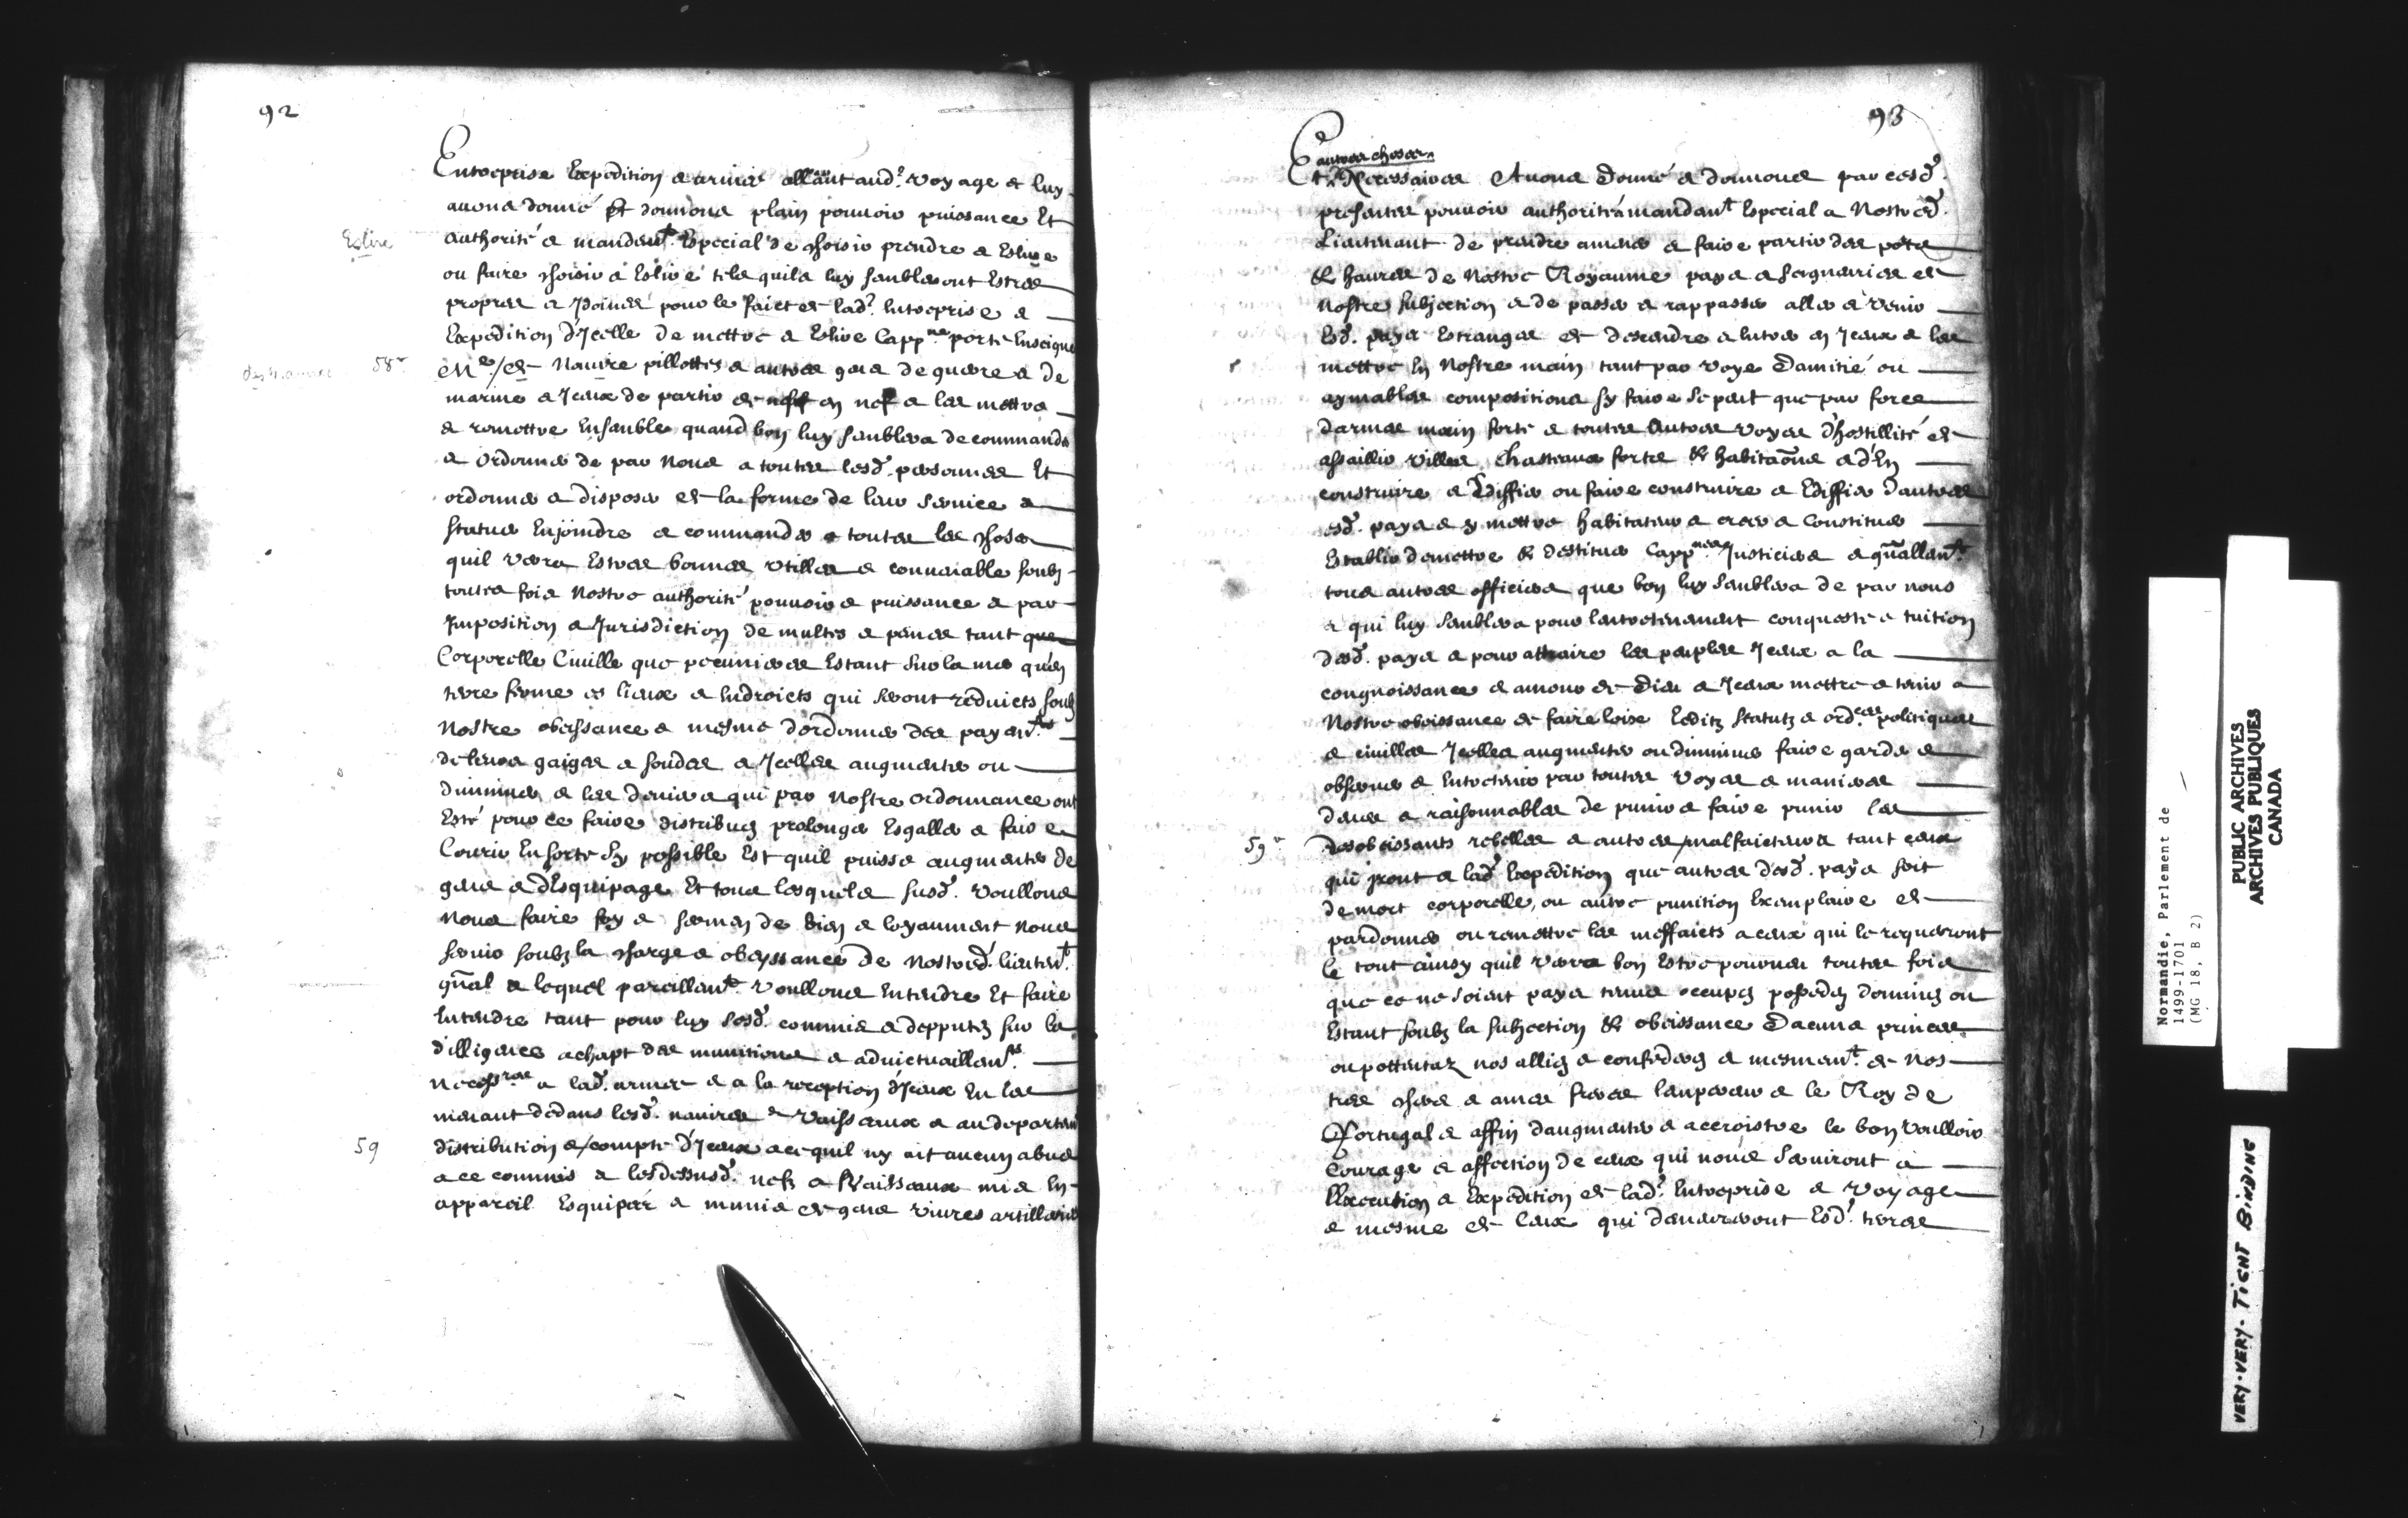 92
Entreprise Expedition & armée allant aud.' voyage & luy
auons donné Et donnons plain pouuoir puissance Et
authorité & mandem.t Especial de choisir prendre & Eslire
Eslire
ou faire choisir & Eslire telz quilz luy sembleront Estres
propres & Idoines pour le faict de lad.' Entreprise &
Expedition d'Icelle de mettre & Eslire Capp.nes porte Enseigne
58
M.es de Nauire pillottes & autres gens de guerre & de
marine & Iceux de partir de nef en nef & les mettre
& remettre Ensemble quand bon luy semblera de commander
& Ordonner de par Nous a toutes lesd. personnes Et
ordonner & disposer de la forme de leur seruice &
statuer Enjoindre & commander & toutes les choses
quil verra Estres bonnes vtilles & conuenable soubz
toutes fois Nostre authorité pouuoir & puissance & par
Imposition & Jurisdiction de multes & peines tant que
Corporelle Ciuille que pecunieres Estant sur la mer qu'en
terre ferme es lieux & Endroicts qui seront reduicts soubz
Nostre obeissance & mesme d'ordonner des payem.ts
de leurs gaiges & soudes & Icelles augmenter ou
diminuer & les deniers qui par Nostre ordonnance ont
Esté pour ce faire distribuez prolonger Esgaller & faire
Courir En sorte sy possible Est quil puisse augmenter de
gens & d'Esquipage Et tous lesquelz susd.' voullons
Nous faire foy & sermen de bien & loyaument Nous
seruir soubz la charge & obeyssance de Nostred.' lieuten.t
gñal & lequel pareillem.t voullons Entendre Et faire
Entendre tant pour luy sesd.' commis & depputez sur la
dilligence achapt des munitions & aduictuaillem.ts
Necess.res a lad.' armée & a la reception d'Iceux En les
menant dedans lesd.' nauires & Vaisseaux & au departem
59
distribution & compte d'Iceux a ce quil ny ait aucun abus
a ce commis & lesdessusd.' nefz & Vaisseaux mis En
appareil Esquipéz & munis de gens viures artillerie
93
autres choses
Et Necessaires Auons Donné & donnons par cesd.'
presentes pouuoir authorité & mandem.t Especial a Nostred.'
Lieutenant de prendre amener & faire partir des portz
& haures de Nostre Royaume pays & seigneuries de
Nostre subjection & de passer & rappasser aller & venir
Esd.' pays Estranges de descendre & Entrer en Iceux & les
mettre En Nostre main tant par voye Damitié ou
aymables compositions sy faire se peut que par force
darmes main forte & toutes Autres voyes d'hostillité de
assaillir villes chasteaux fortz & habitaõns & d'En
construire & Ediffier ou faire construire & Ediffier dautres
esd.' pays & y mettre habitateurs & creer & Constituer
Establir demettre & destituer Capp.nes Justiciers & gñallem.t
tous autres officiers que bon luy semblera de par nous
& qui luy semblera pour lentretenement conqueste & tuition
desd.' pays & pour attraire les peuples Iceux a la
congnoissance & amour de Dieu & Iceux mettre & tenir a
Nostre obeissance de faire loix Editz statutz & ord.ces politiques
& ciuilles Icelles augmenter ou diminuer faire garder &
obseruer & Entretenir par toutes voyes & manieres
deues & raisonnables de punir & faire punir les
59
desobeissants rebelles & autres malfaicteurs tant ceux
qui jront a lad.' Expedition que autres desd.' pays soit
de mort corporelle, ou autre punition Exemplaire de
pardonner ou remettre les meffaicts a ceux qui le requerront
le tout ainsy quil verra bon Estre pourueu toutes fois
que ce ne soient pays tenus occupez possedez dominez ou
Estant soubz la subjection & obeissance Daucuns princes
ou pottentaz nos alliez & confederez & mesmem.t de nos
tres chers & amez freres lempereur & le Roy de
Portugal & affin daugmenter & accroistre le bon voulloir
Courage & affection de ceux qui nous seruiront a
lExecution & Expedition de lad.' Entreprise & voyage
& mesme de Ceux qui demeureront Esd.' terres
Normandie, Parlement de
1499-1701
(MG 18, B 2)
PUBLIC ARCHIVES
ARCHIVES PUBLIQUES
CANADA
VERY-VERY-TIGHT BINDING